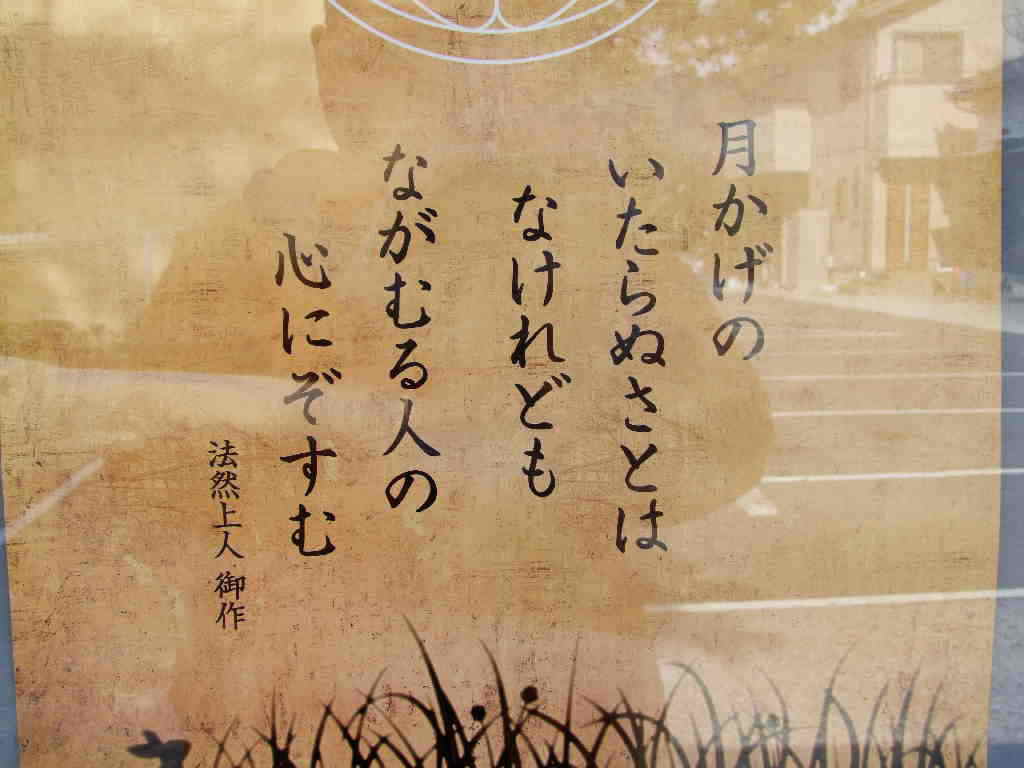 月かげの
いたらぬさとは
なけれども
ながむる人の
心にぞすむ
法然上人 御作